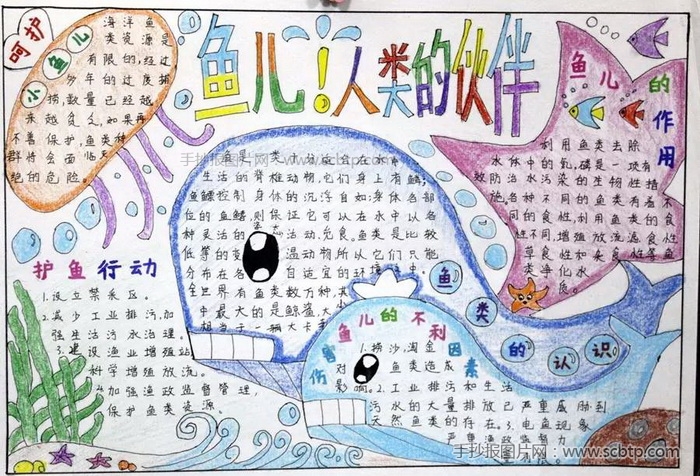 鱼儿!人类的伙伴
呵护
小鱼儿
海洋鱼
类资源是
有限的,经过
多年的过度捕
捞,数量已经越
来越少了,如果再
不善保护,鱼类种
群将会面临灭
绝的危险。
手抄报图片网 - www.scbtp.com
鱼是一类
生活的脊椎动物,它们身上有鳞;
鱼鳔控制身体的沉浮自如;身体各部
位的鱼鳍,则保证它可以在水中以各
种灵活的
低等的变温动物所以它们只能
分布在各自适宜的环境
全世界有鱼类数万种,其
中最大的是鲸鲨大小
相当于一辆大卡
鱼类的认识
鱼儿的作用
利用鱼类去除
水体中的氮、磷是一项有
效防治水污染的生物性措
施。各种不同的鱼类有着不
同的食性,利用鱼类的食
性不同,增殖放流滤食性
草食性和杂食性等
类净化水
质。
护鱼行动
1.设立禁采区。
2.减少工业排污,加
强生活污水治理。
3.建设渔业增殖站,
科学增殖放流。
4.加强渔政监督管理,
保护鱼类资源。
鱼儿的不利
伤害因素
1.捞沙,淘金
对鱼类造成
影响。2.工业排污和生活
污水的大量排放已严重威胁到
天然鱼类的存在。3.电鱼现象
严重渔政监督努力
手抄报图片网 www.scbtp.com